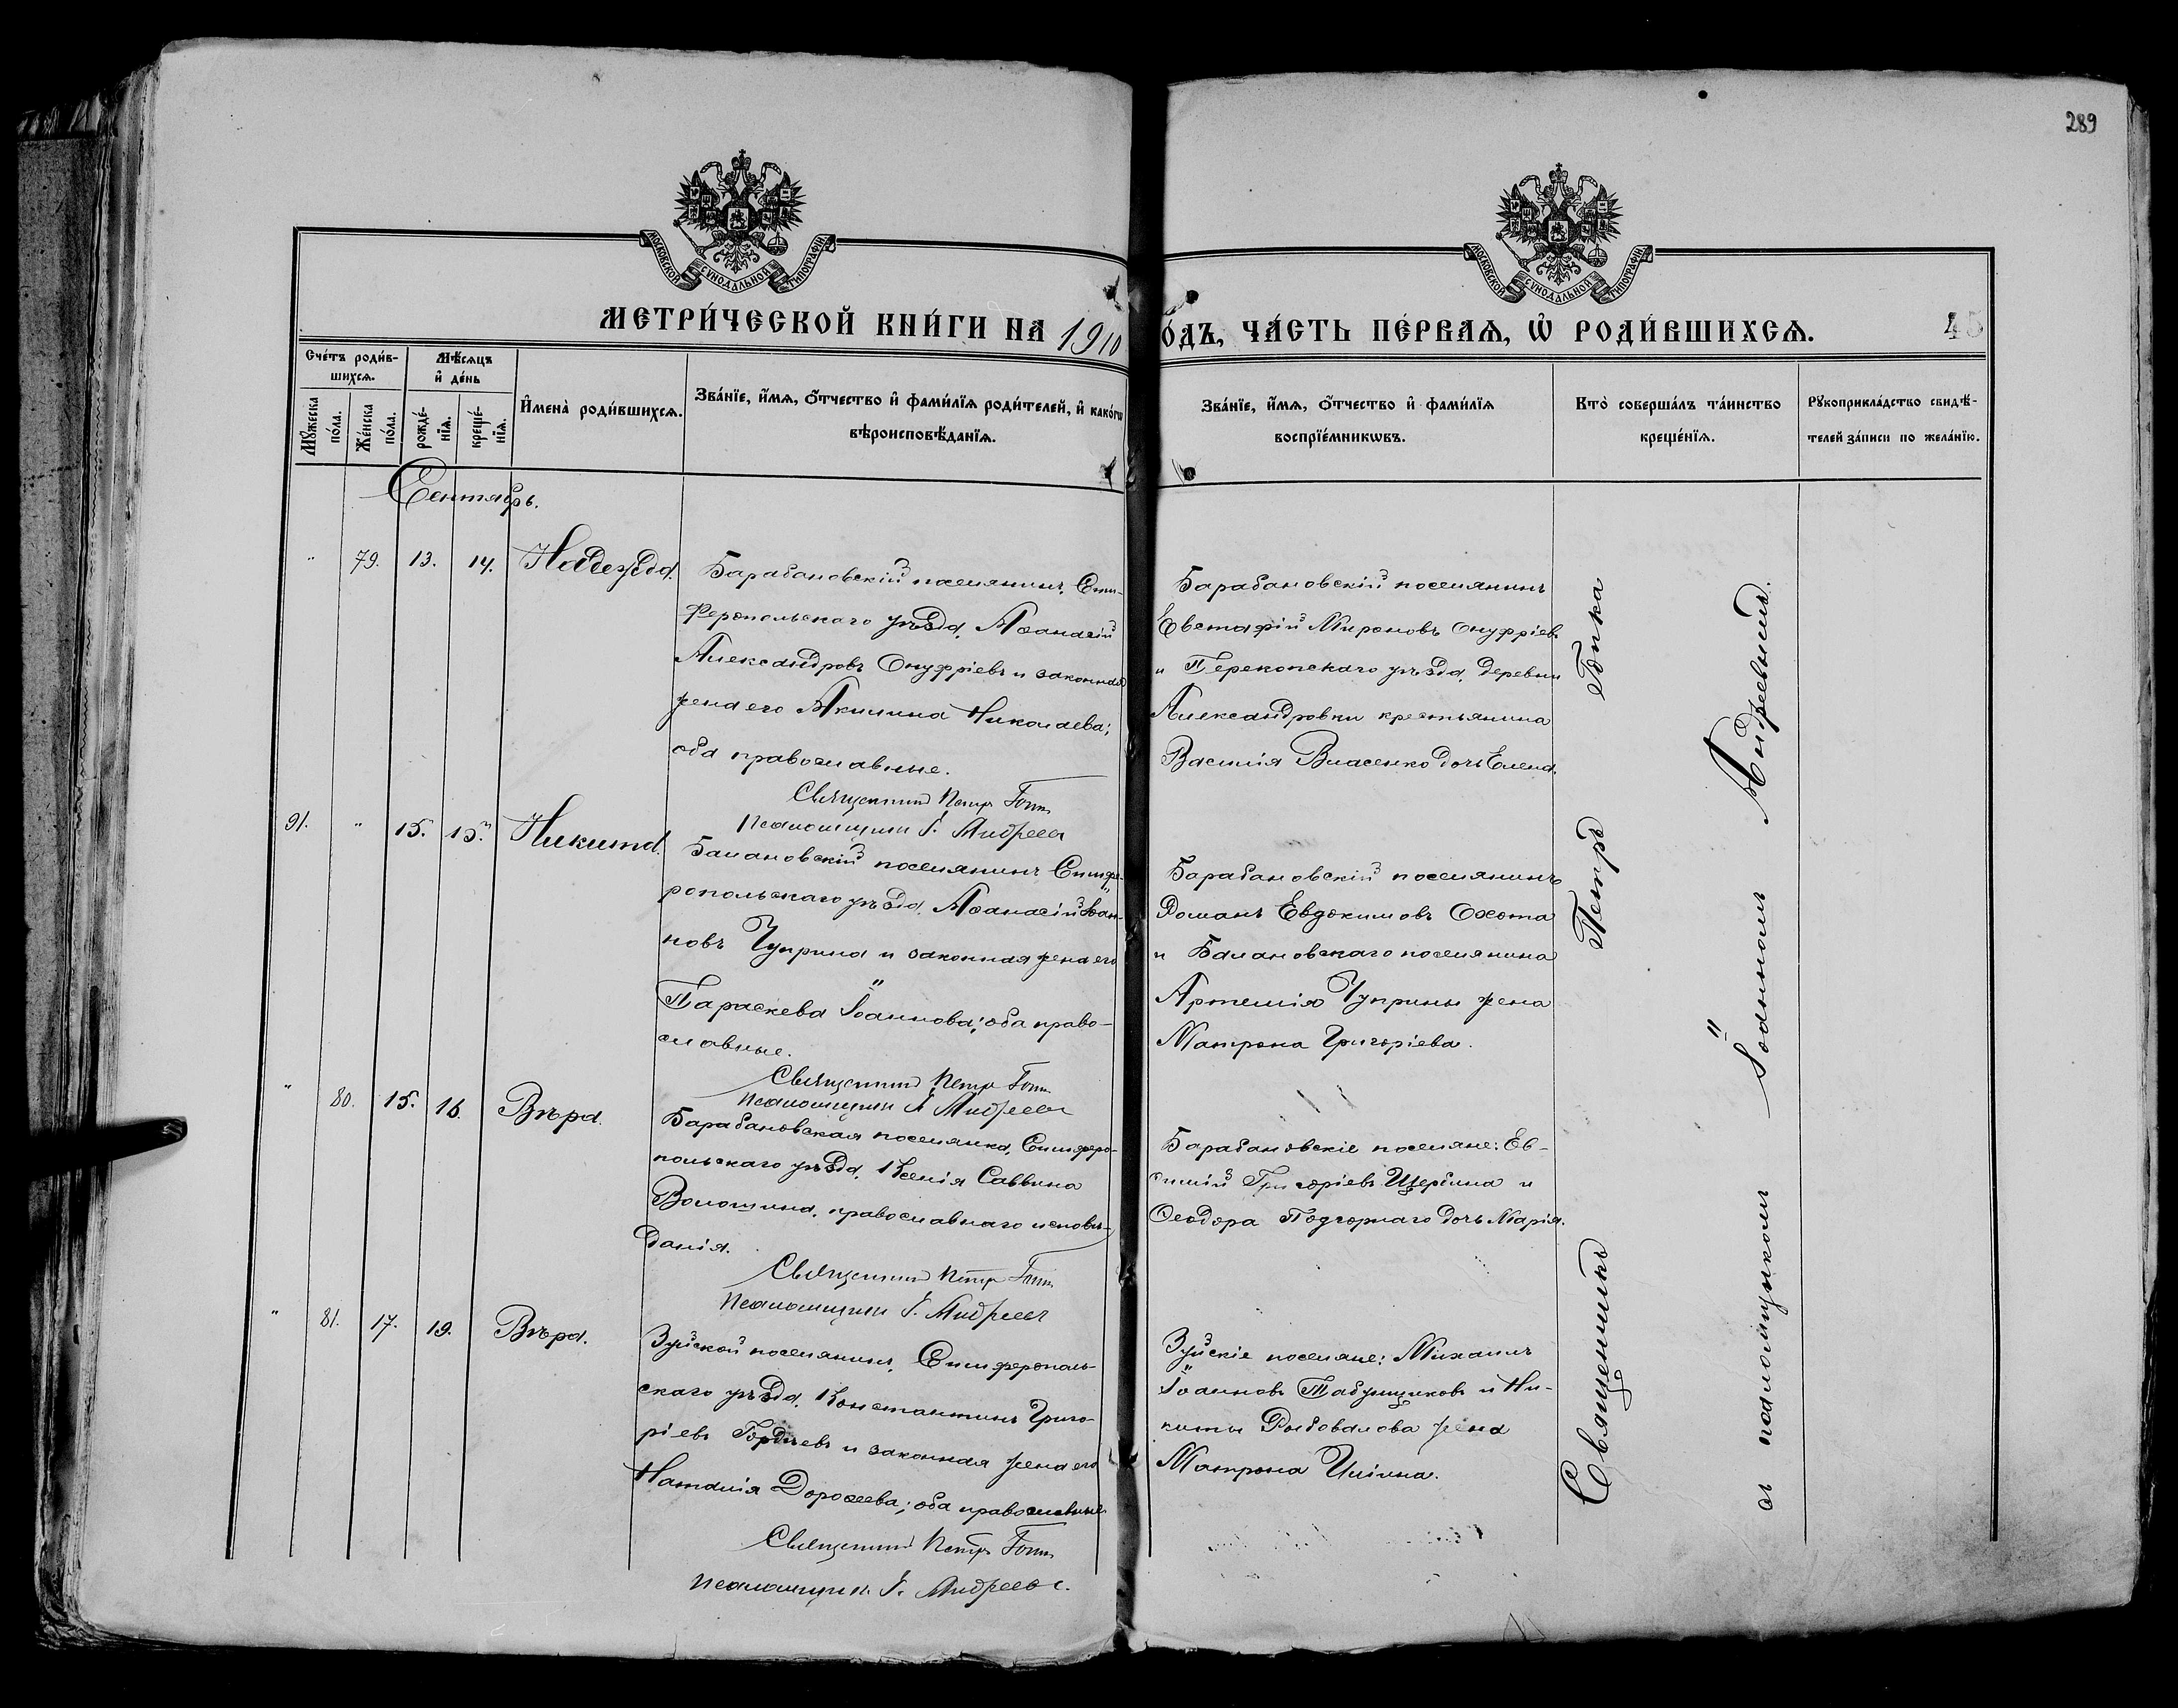 289
МОСКОВСКОЙ СѴНОДАЛЬНОЙ ТИПОГРАФІИ
МОСКОВСКОЙ СѴНОДАЛЬНОЙ ТИПОГРАФІИ
МЕТРИ́ЧЕСКОЙ КНИ́ГИ НА 1910
О́ДЪ, ЧА́СТЬ ПЕ́РВАѦ, Ѿ РОДИ́ВШИХСѦ.
45
Сче́тъ роди́в-
шихсѧ.
Мѣ́сѧцъ
и҆ де́нь
Мꙋ́жеска
по́ла.
Же́нска
по́ла.
рожде́-
нїѧ.
креще́-
нїѧ.
И҆мена̀ роди́вшихсѧ.
Зва́нїе, и҆́мѧ, ѻ҆́тчество и҆ фами́лїѧ роди́телей, и҆ како́гѡ
вѣроисповѣ́данїѧ.
Зва́нїе, и҆́мѧ, ѻ҆́тчество и҆ фами́лїѧ
воспрїе́мникѡвъ.
Кто̀ соверша́лъ та́инство
креще́нїѧ.
Рꙋкоприкла́дство свидѣ́-
телей за́писи по жела́нїю.
Сентябрь.
" 79. 13. 14. Надежда.
Барабановскій поселянинъ, Сим-
феропольскаго уѣзда, Аѳанасій
Александровъ Онуфріевъ и законная
жена его Акилина Николаева;
оба православные.
Священникъ Петръ Гопка
Псаломщикъ І. Андреевъ
Барабановскій поселянинъ
Евстафій Мироновъ Онуфріевъ
и Перекопскаго уѣзда, деревни
Александровки крестьянина
Василія Власенко дочь Елена.
91. " 15. 15. Никита.
Балановскій поселянинъ Симфе-
ропольскаго уѣзда, Аѳанасій Іоан-
новъ Чуприна и законная жена его
Параскева Іоаннова; оба право-
славные.
Священникъ Петръ Гопка
Псаломщикъ І. Андреевъ
Барабановскій поселянинъ
Романъ Евдокимовъ Охота
и Балановскаго поселянина
Артемія Чуприны жена
Матрона Григоріева.
" 80. 15. 16. Вѣра.
Барабановская поселянка, Симферо-
польскаго уѣзда, Ксенія Саввина
Волошина, православнаго исповѣ-
данія.
Священникъ Петръ Гопка
Псаломщикъ І. Андреевъ
Барабановскіе поселяне: Ев-
Григоріевъ Щербина и
Ѳеодора Подгорнаго дочь Марія.
" 81. 17. 19. Вѣра.
Зуйской поселянинъ, Симферополь-
скаго уѣзда, Константинъ Григо-
ріевъ Гордіевъ и законная жена его
Наталія Дороѳеева; оба православные
Священникъ Петръ Гопка
Псаломщикъ І. Андреевъ.
Зуйскіе поселяне: Михаилъ
Іоанновъ Табунщиковъ и Ни-
киты Рыдовалова жена
Матрона Иліина.
Священникъ Петръ Гопка
съ псаломщикомъ Іоанномъ Андреевымъ.